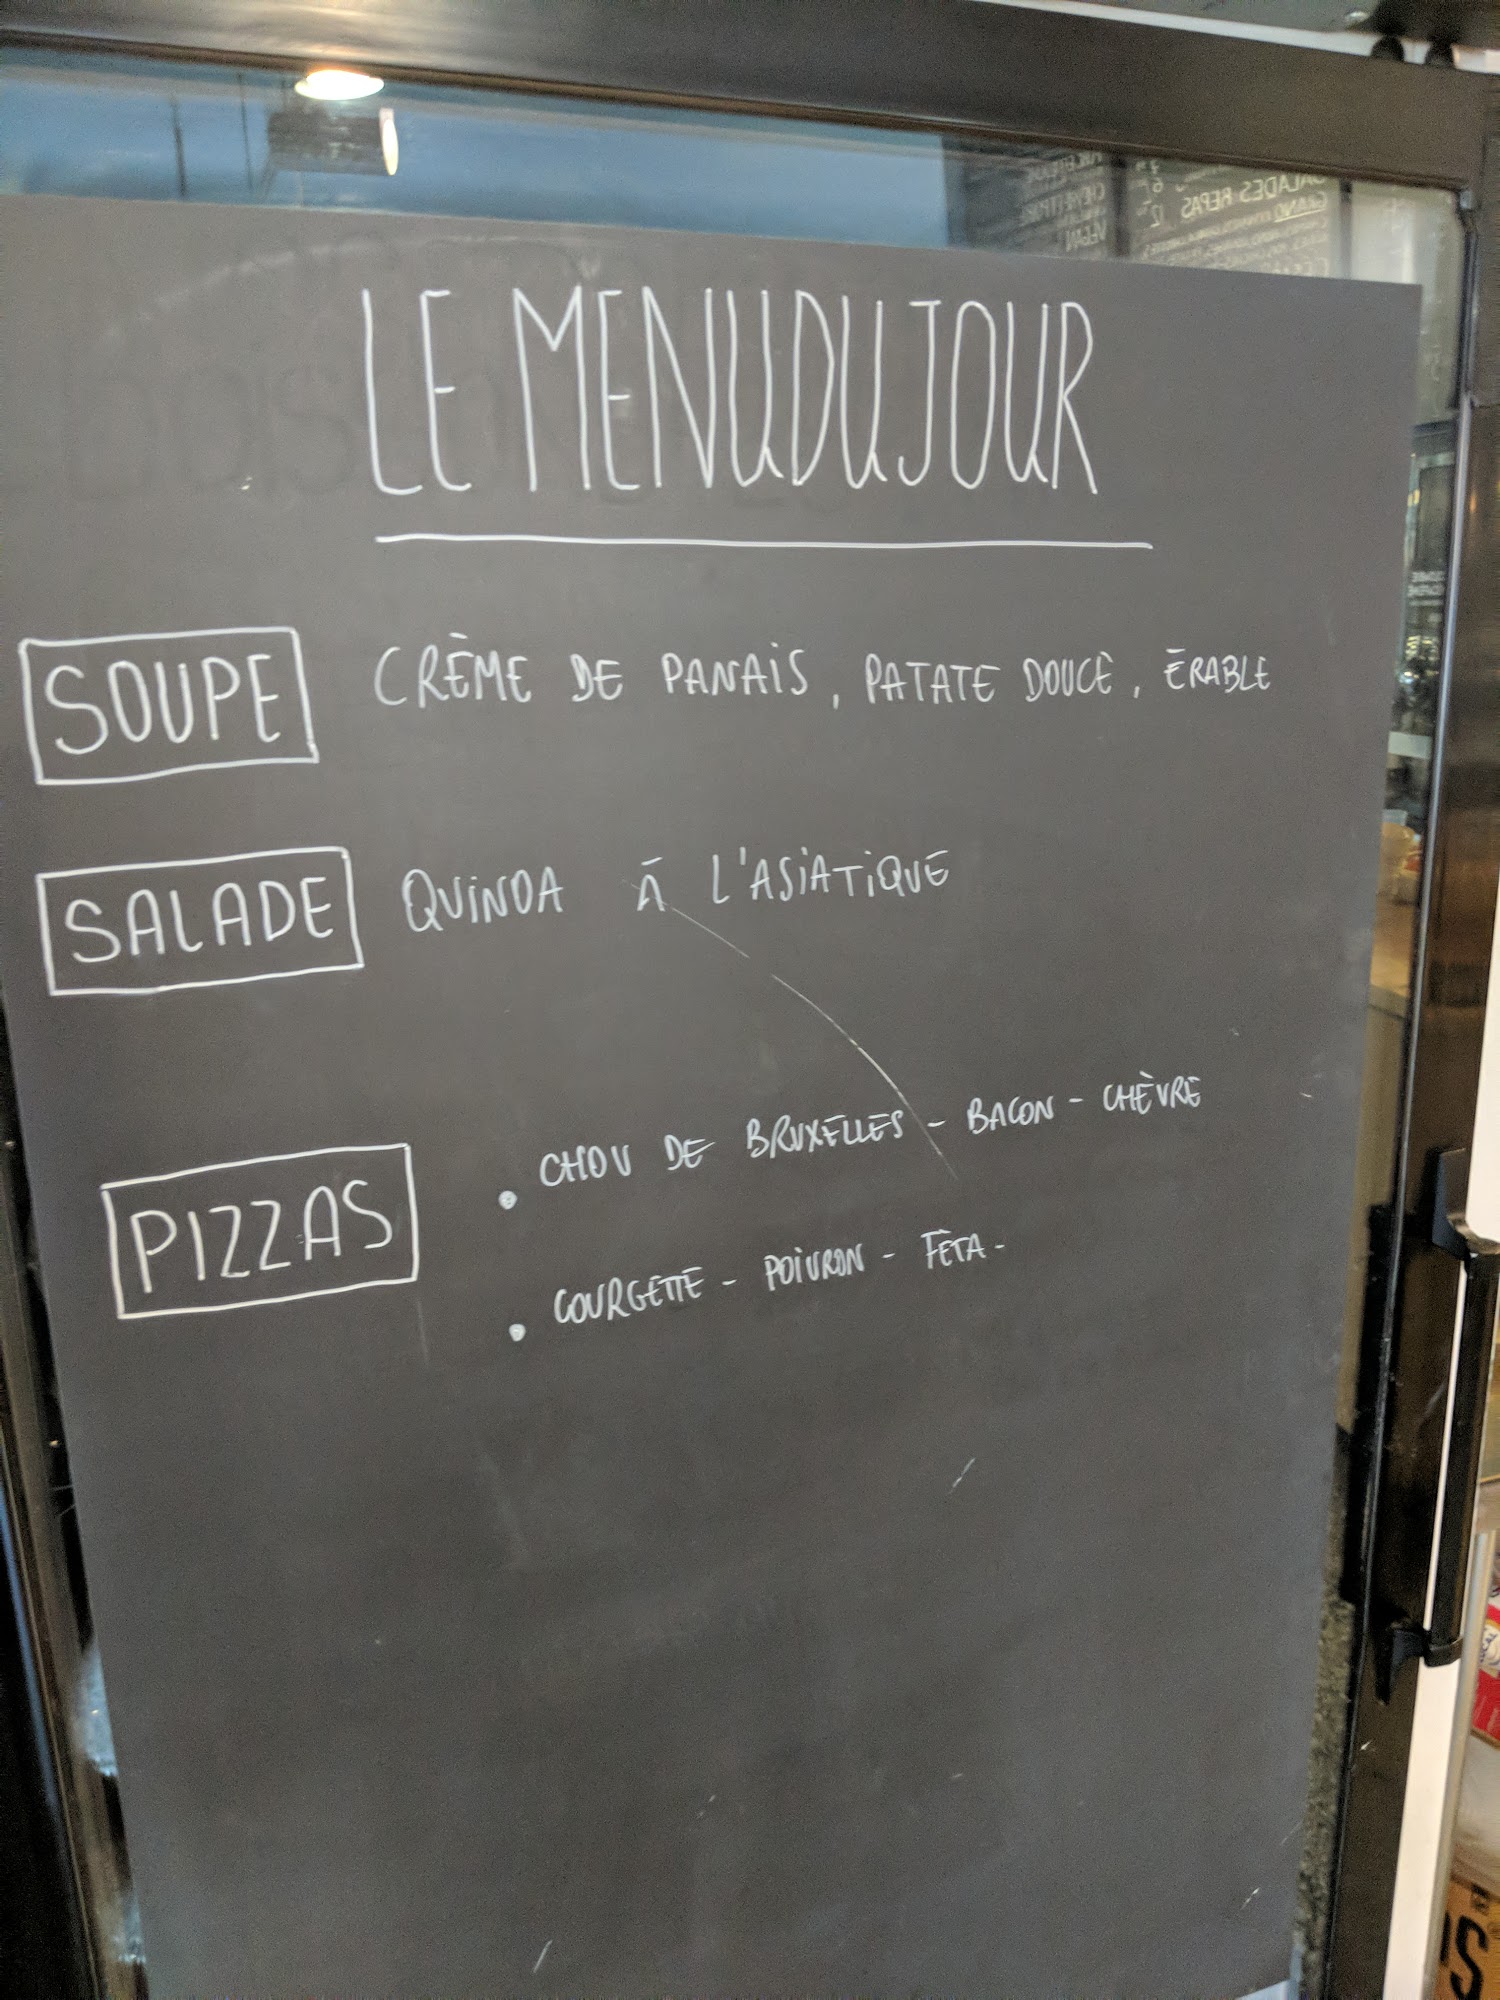 LE MENU DU JOUR
SOUPE CRÈME DE PANAIS, PATATE DOUCE, ÉRABLE
SALADE QUINOA À L'ASIATIQUE
PIZZAS
• CHOU DE BRUXELLES - BACON - CHÈVRE
• COURGETTE - POIVRON - FÊTA -
SALADES REPAS
GRAND
VEGAN
12